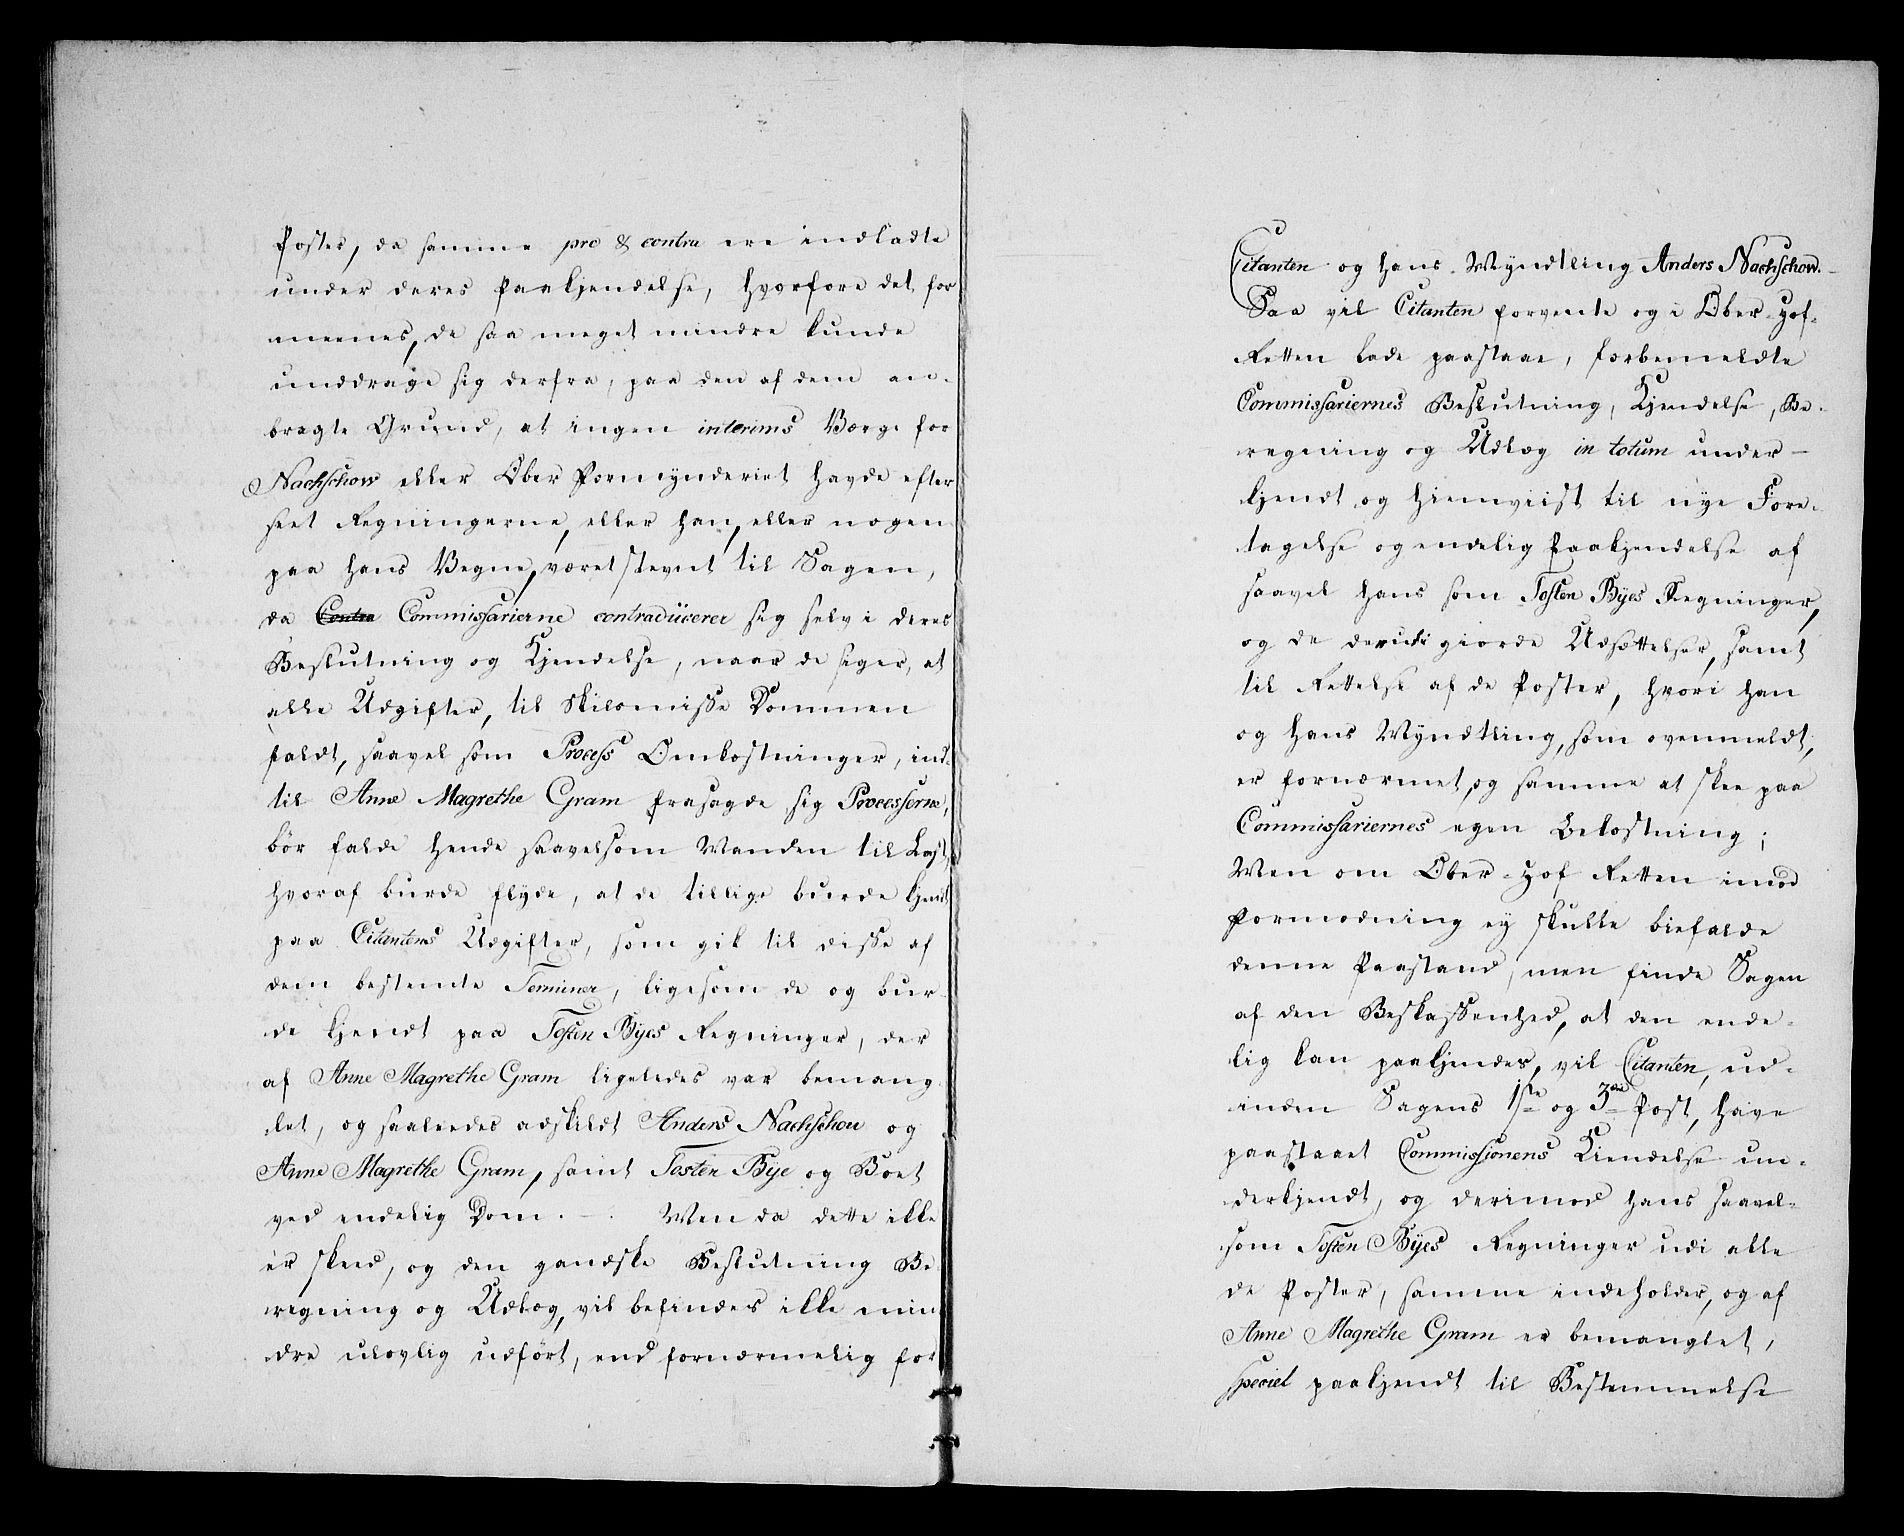 Poster, da samme pro & contra ere indladte
under deres Paakjendelse, hvorfore det for
meenes, de saa meget mindre kunde
unddrage sig derfra, paa den af dem an-
bragte Grund, at ingen interims Værge for
Nachschow eller Ober Formynderiet havde efter
seet Regningerne, eller han, eller nogen
paa hans Vegne, været stevnt til Sagen,
da Contra Commissarierne contradücerer sig selv i deres
Beslutning og Kjendelse, naar de siger, at
alle Udgifter, til Skilsmisse Dommen
faldt, saavel som Process Omkostninger, ind-
til Anne Magrethe Gram frasagde sig Processerne,
bör falde hende saavelsom Manden til Last,
hvoraf burde flyde, at de tillige burde kjendt
paa Citantens Udgifter, som gik til disse af
dem bestemte Terminer, ligesom de og bur-
de kjendt paa Tosten Byes Regninger, der
af Anne Magrethe Gram ligeledes var bemang-
let, og saaledes adskildt Anders Nachschow og
Anne Magrethe Gram, samt Tosten Bye og Boet
ved endelig Dom. — Men da dette ikke
er skeed, og den gandske Beslutning Be-
regning og Udlæg, vil befindes ikke min-
dre ulovlig udført, end fornærmelig for
Citanten og hans Myndtling Anders Nachschow. —
Saa vil Citanten forvente og i Ober-Hof-
Retten lade paastaae, forbemeldte
Commissariernes Beslutning, Kjendelse, Be-
regning og Udlæg in totum under-
kjendt og hiemviist til nye Fore-
tagelse og endelig Paakjendelse af
saavel hans som Tosten Byes Regninger,
og de derudi giorde Udsættelser, samt
til Rettelse af de Poster, hvori han
og hans Myndtling, som ovenmeldt,
er fornærmet, og samme at skee paa
Commissariernes egen Bekostning;
Men om Ober-Hof Retten imod
Formodning ey skulle biefalde
denne Paastand, men finde Sagen
af den Beskaffenhed, at den ende-
lig kan paakjendes, vil Citanten, ud-
inden Sagens 1ste og 3die Post, have
paastaaet Commissionens Kiendelse un-
derkjendt, og derimod hans saavel-
som Tosten Byes Regninger udi alle
de Poster, samme indeholder, og af
Anne Magrethe Gram er bemanglet,
speciel paakjendt til Bestemmelse